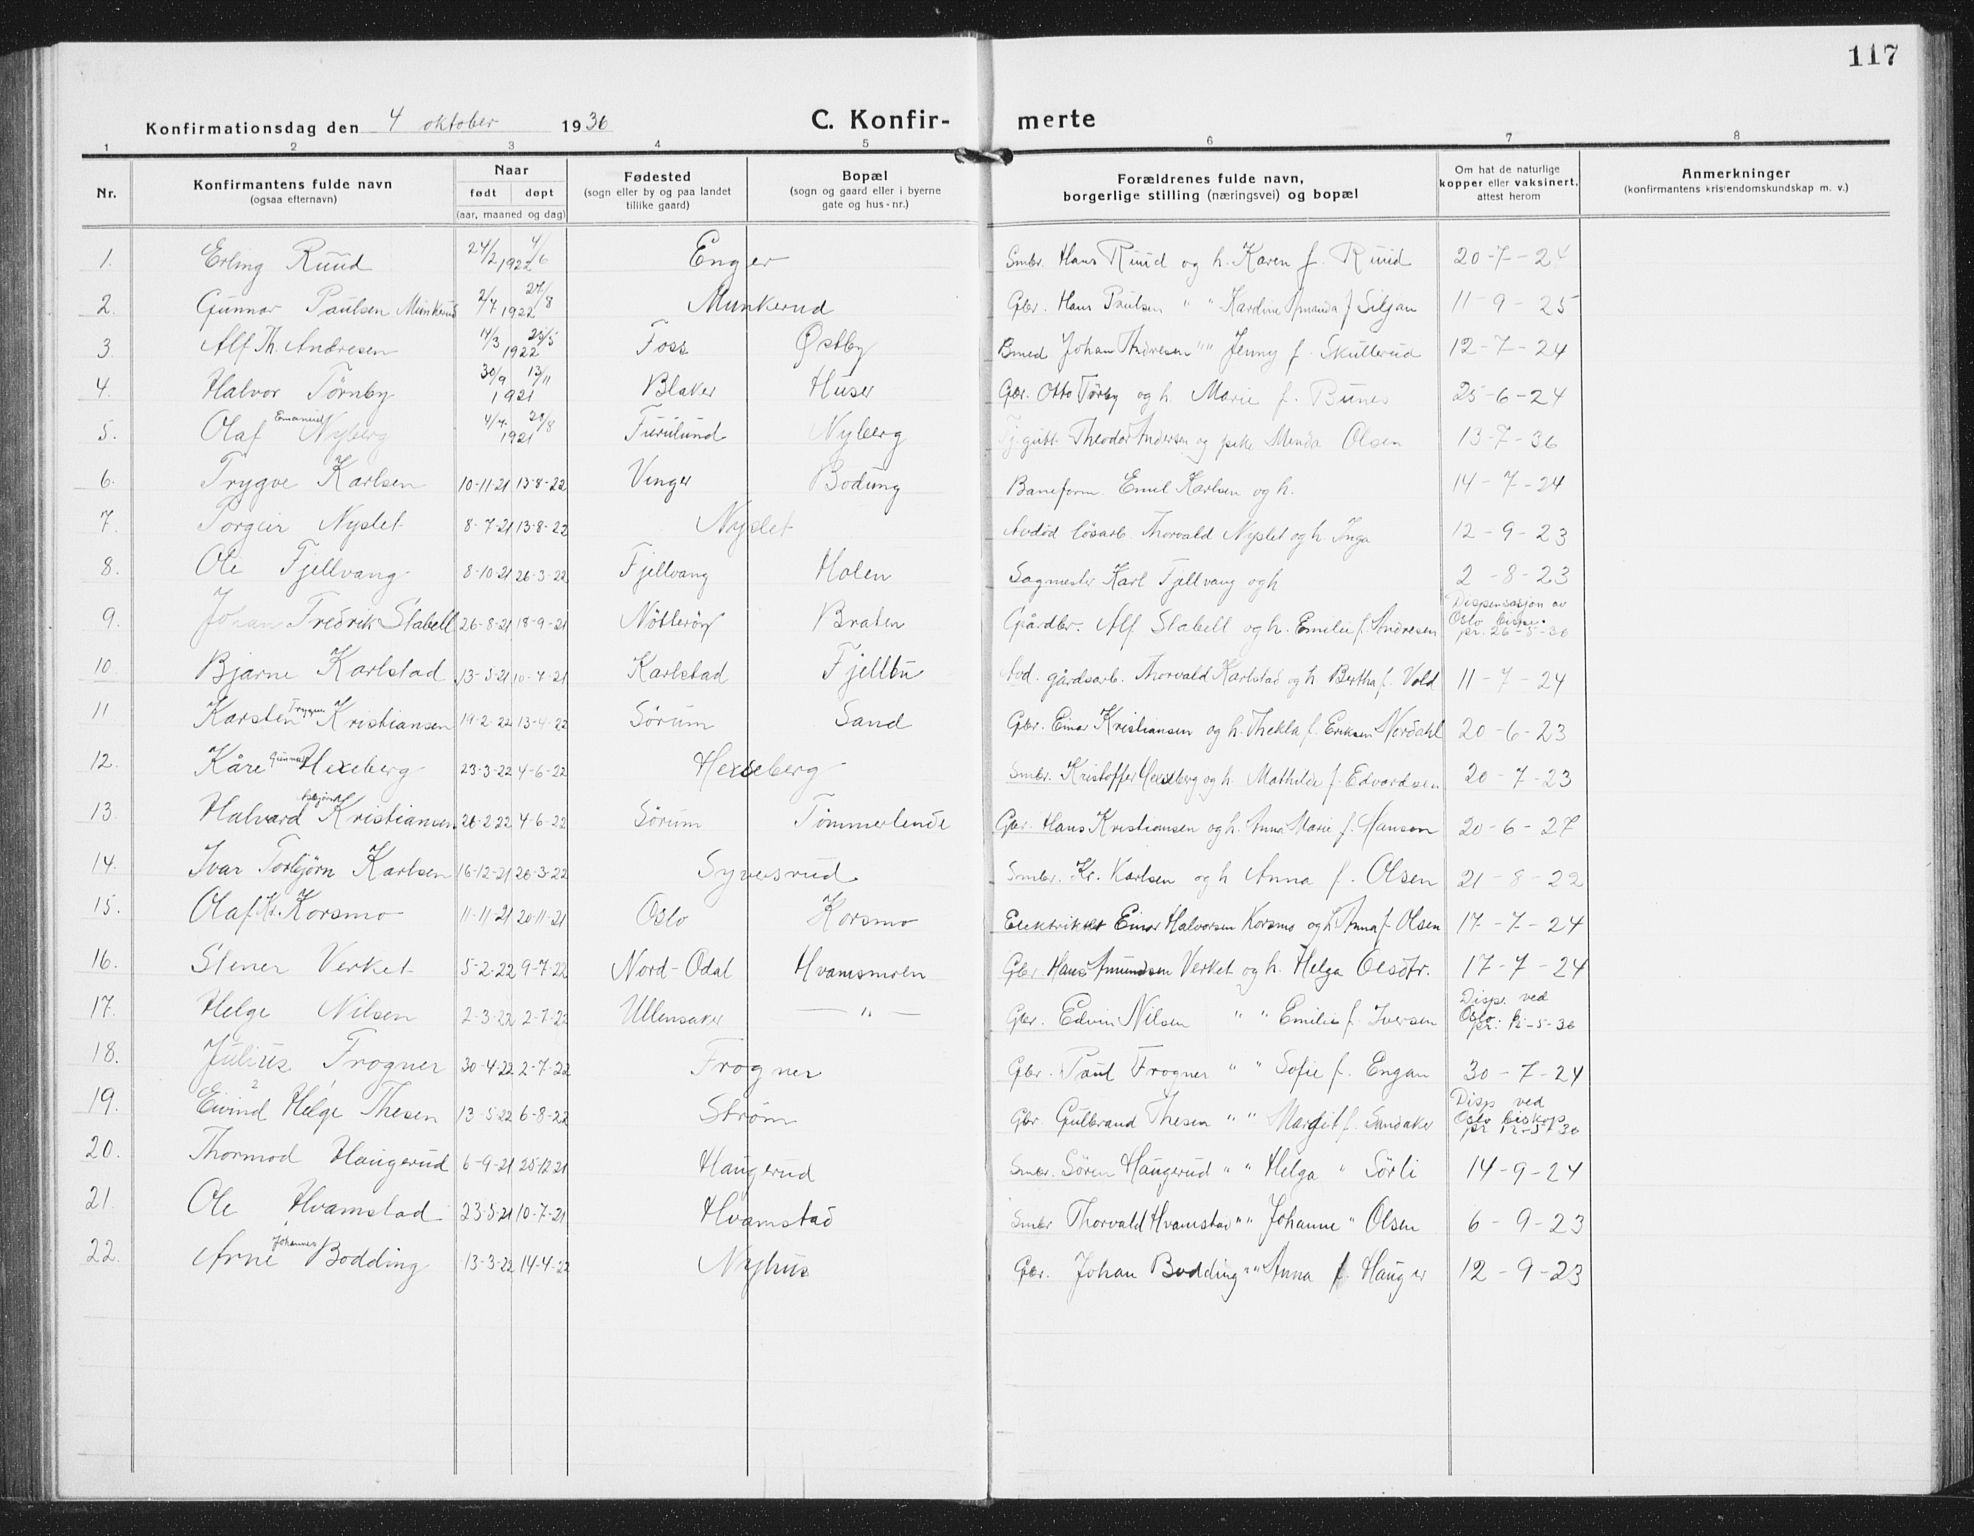 117
Konfirmationsdag den 4 oktober 1936 C. Konfir- merte
1 2 3 4 5 6 7 8
Nr. Konfirmantens fulde navn (ogsaa efternavn) Naar født døpt (aar, maaned og dag) Fødested (sogn eller by og paa landet tillike gaard) Bopæl (sogn og gaard eller i byerne gate og hus-nr.) Forældrenes fulde navn, borgerlige stilling (næringsvei) og bopæl Om hat de naturlige kopper eller vaksinert, attest herom Anmerkninger (konfirmantens kristendomskundskap m. v.)
1. Erling Ruud 24/2 1922 4/6 Enger Smbr. Hans Ruud og h. Karen f. Ruud 20-7-24
2. Gunnar Paulsen Munkerud 2/7 1922 27/8 Munkerud Gbr. Hans Paulsen " " Kardine Amanda f. Siljan 11-9-25
3. Alf Th. Andresen 14/3 1922 25/5 Foss Østby Bmed Johan Andresen " " Jenny f. Skullerud 12-7-24
4. Halvor Tørnby 30/9 1921 13/11 Blaker Huser Gbr. Otto Tørby og h. Marie f. Bunes 25-6-24
5. Olaf Emanuel Nyberg 4/7 1921 29/8 Furulund Nyberg Tj.gutt Theodor Andersen og pike Menda Olsen 13-7-36
6. Trygve Karlsen 10-11-21 13-8-22 Vinger Bodung Baneform. Emil Karlsen og h. 14-7-24
7. Torgeir Nyslet 8-7-21 13-8-22 Nyslet Avdød løsarb. Thorvald Nyslet og h. Inga 12-9-23
8. Ole Fjellvang 8-10-21 26-3-22 Fjellvang Holen Sagmester Karl Fjellvang og h 2-8-23
9. Johan Fredrik Stabell 26-8-21 18-9-21 Nötteröy Braten Gårdbr. Alf Stabell og h. Emilie f. Andresen Dispensasjon av Oslo bispe. pr. 26-5-36
10. Bjarne Karlstad 13-5-21 10-7-21 Karlstad Fjellbu Avd. gårdsarb. Thorvald Karlstad og h Bertha f. Vold 11-7-24
11 Karsten Trygve Kristiansen 19-2-22 13-4-22 Sørum Sand Gbr. Einar Kristiansen og h. Thekla f. Eriksen Nordahl 20-6-23
12. Kåre Gunnar Hexeberg 23-3-22 4-6-22 Hexeberg Smbr. Kristoffer Hexeberg og h. Mathilde f. Edvardsen 20-7-23
13. Halvard Asbjørn Kristiansen 26-2-22 4-6-22 Sørum Tømmerlende Gbr. Hans Kristiansen og h. Anna Marie f. Hanson 20-6-27
14. Ivar Torbjørn Karlsen 16-12-21 26-3-22 Syversrud Smbr. Kr. Karlsen og h Anna f. Olsen 21-8-22
15. Olaf Kr. Korsmo 11-11-21 20-11-21 Oslo Korsmo Elektriker Einar Halvorsen Korsmo og h Anna f. Olsen 17-7-24
16. Stener Verket 5-2-22 9-7-22 Nord-Odal Hvamsmoen Gbr. Hans Amundsen Verket og h. Helga Olsdtr. 17-7-24
17. Helge Nilsen 2-3-22 2-7-22 Ullensaker — " — Gbr. Edvin Nilsen " " Emilie f. Iversen Disp. ved Oslo pr. 12-5-36
18. Julius Frogner 30-4-22 2-7-22 Frogner Gbr. Paul Frogner " " Sofie f. Engan 30-7-24
19. Eivind Helge Thesen 13-5-22 6-8-22 Strøm Gbr Gulbrand Thesen " " Margit f. Sandaker Disp ved Oslo biskop pr 12-5-36
20. Thormod Haugerud 6-9-21 25-12-21 Haugerud Smbr. Søren Haugerud " " Helga " Sørli 14-9-24
21. Ole Hvamstad 23-5-21 10-7-21 Hvamstad Smbr Thorvald Hvamstad " " Johanne " Olsen 6-9-23
22. Arne Johannes Bodding 13-3-22 14-4-22 Nyhus Gbr. Johan Bodding " " Anna f. Hauger 12-9-23